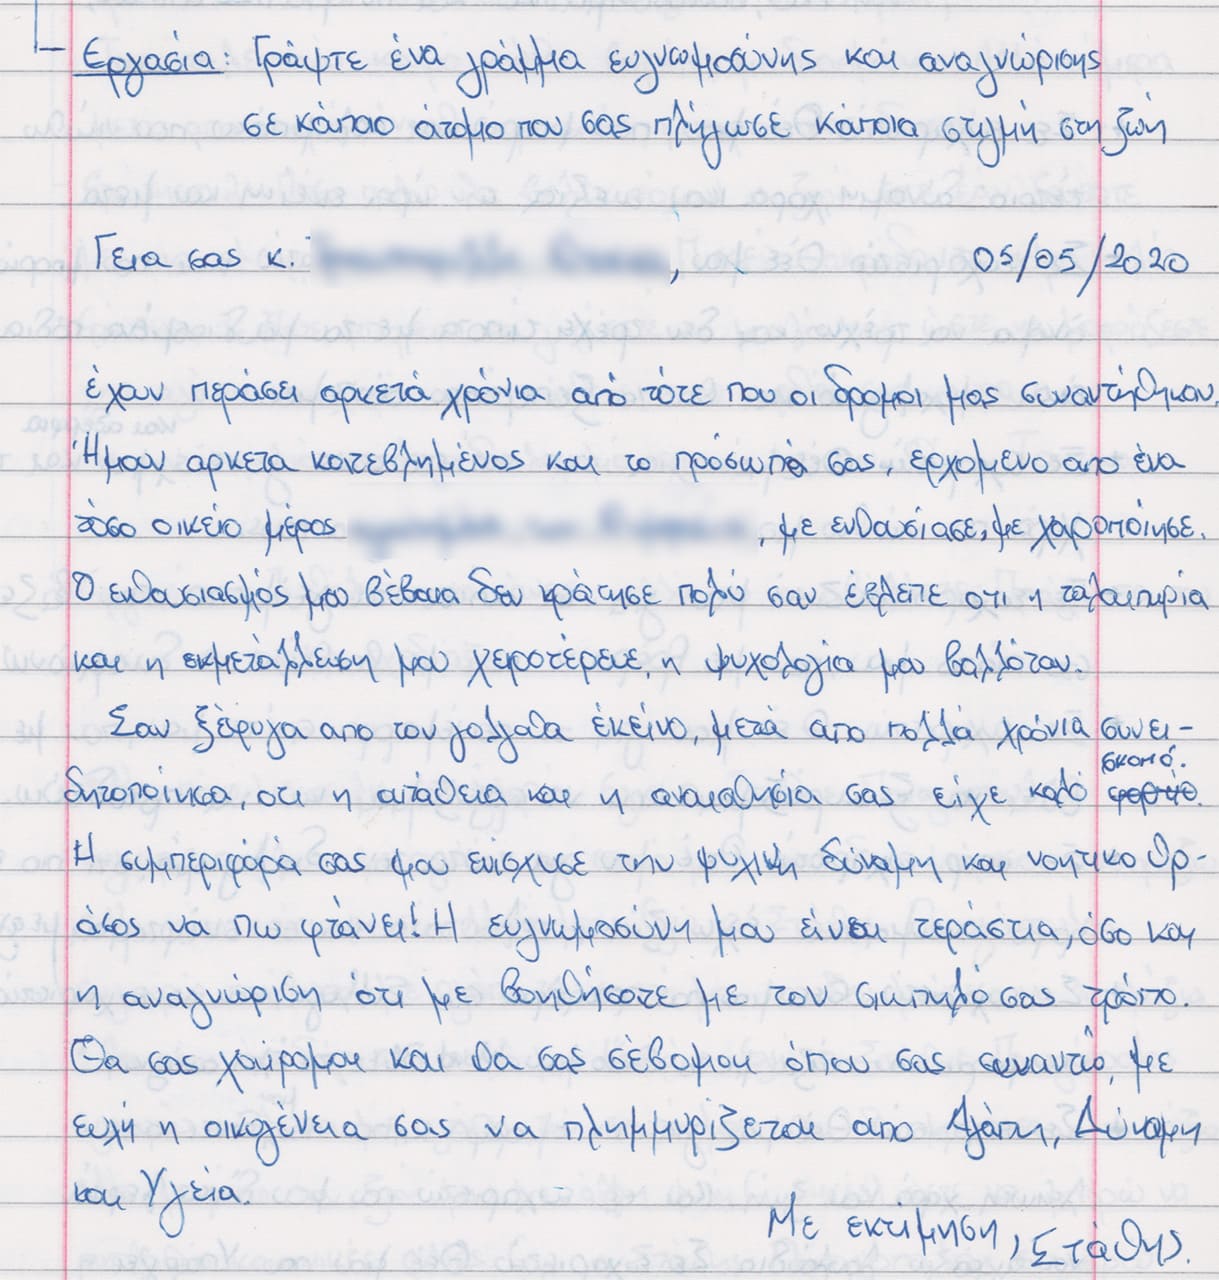 Εργασία: Γράψτε ένα γράμμα ευγνωμοσύνης και αναγνώρισης
σε κάποιο άτομο που σας πλήγωσε κάποια στιγμή στη ζωή
Γεια σας κ. , 05/05/2020
έχουν περάσει αρκετά χρόνια από τότε που οι δρόμοι μας συναντήθηκαν.
Ήμουν αρκετα καταβλημένος και το πρόσωπό σας, ερχομενο από ένα
τόσο οικείο μέρος , με ενθουσίασε, με χαροποίησε.
Ο ενθουσιασμός μου βέβαια δεν κράτησε πολύ σαν είδετε οτι η ταλαιπωρία
και η εκμετάλλευση μου χειροτέρευε, η ψυχολογία μου βαλλόταν.
Σαν ξέφυγα απο τον γολγοθα εκείνο, μετά απο πολλά χρόνια συνει-
δητοποίησα, οτι η απάθεια και η αναισθησία σας είχε καλό σκοπό.
Η συμπεριφορά σας μου ενίσχυσε την ψυχική δύναμη και νοητικο θρ-
άσος να πω φτάνει! Η ευγνωμοσύνη μου είναι τεράστια, όσο και
η αναγνώριση ότι με βοηθήσατε με τον σιωπηλό σας τρόπο.
Θα σας χαίρομαι και θα σας σέβομαι όπου σας συναντώ, με
ευχή η οικογένεια σας να πλημμυρίζεται απο Αγάπη, Δύναμη
και Υγεία.
Με εκτίμηση, Στάθης.